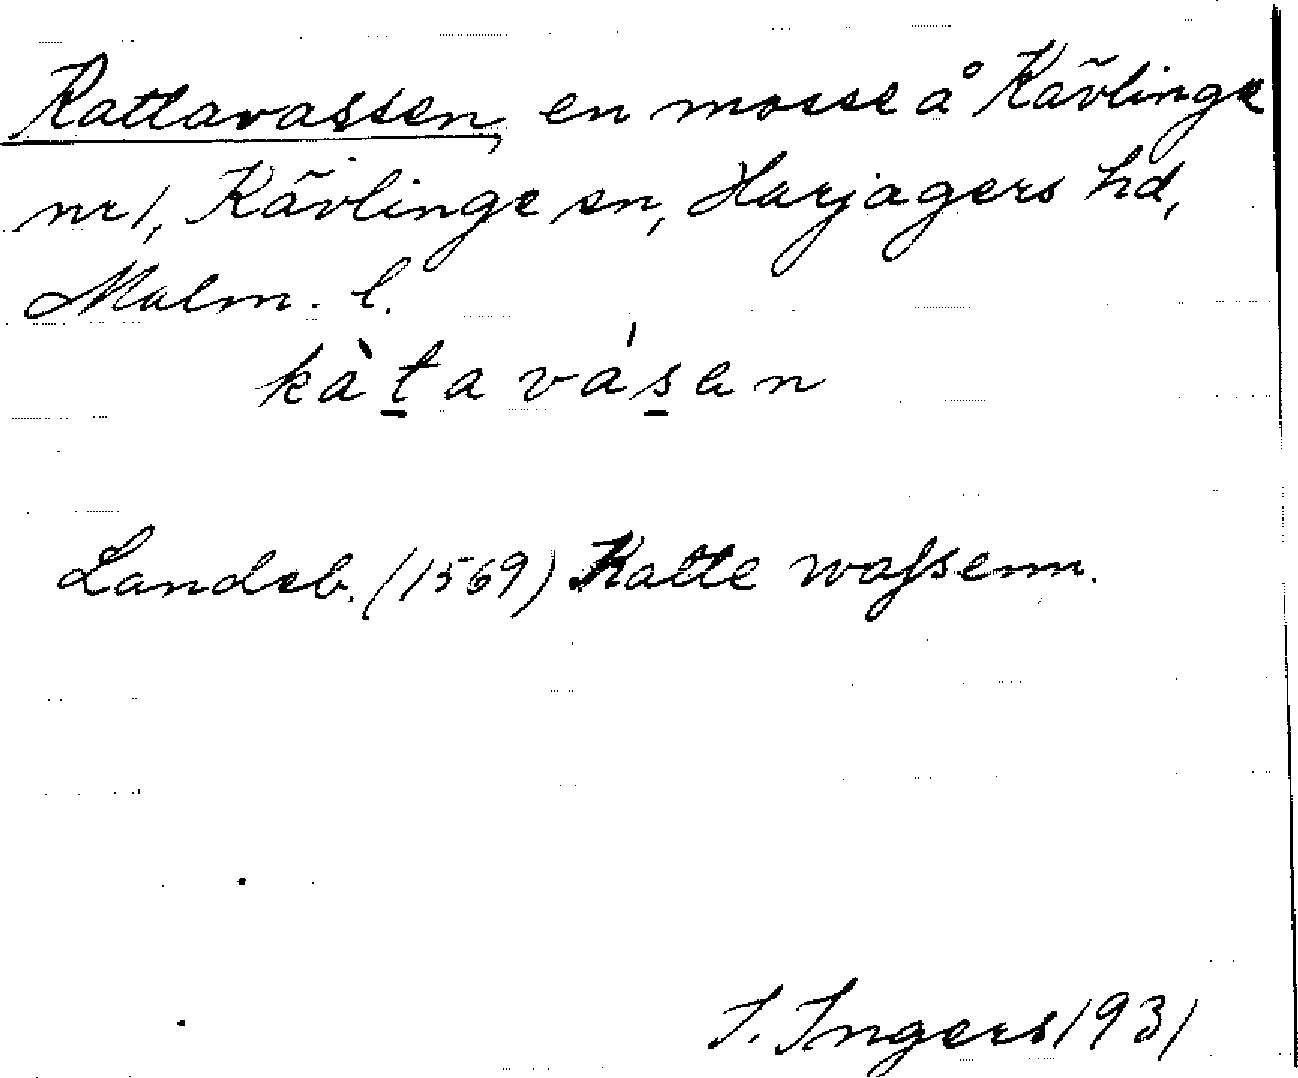 Kattavassen, en mosse å Kävlinge
nr 1, Kävlinge sn, Harjagers hd,
Malm. l.
kàṯavás̱en
Landeb. (1569) Katte waſsenn.
I. Ingers 1931